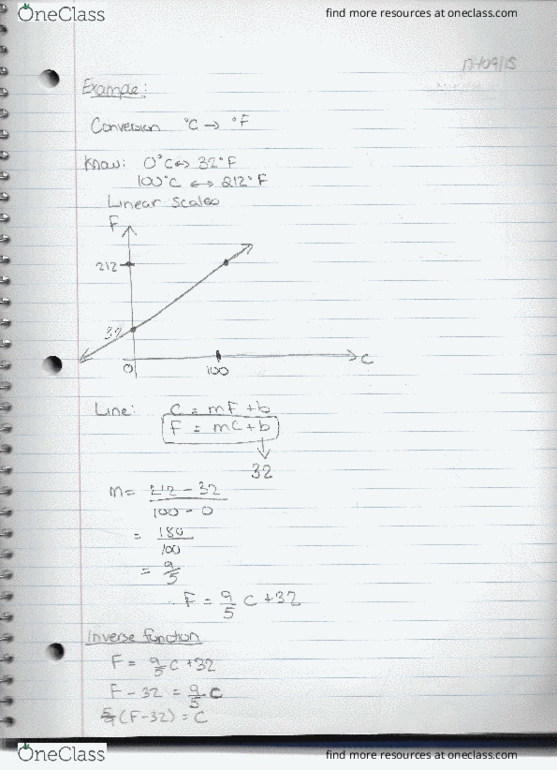 OneClass find more resources at oneclass.com
17/09/15
Example:
Conversion °C → °F
Know: 0°C ↔ 32°F
100°C ↔ 212°F
Linear Scales
F
212
32
0 100 C
Line: C = mF + b
F = mC + b
32
m = 212 - 32
100 - 0
= 180
100
= 9
5
∴ F = 9/5 C + 32
Inverse function
F = 9/5 C + 32
F - 32 = 9/5 C
5/9 (F - 32) = C
OneClass find more resources at oneclass.com